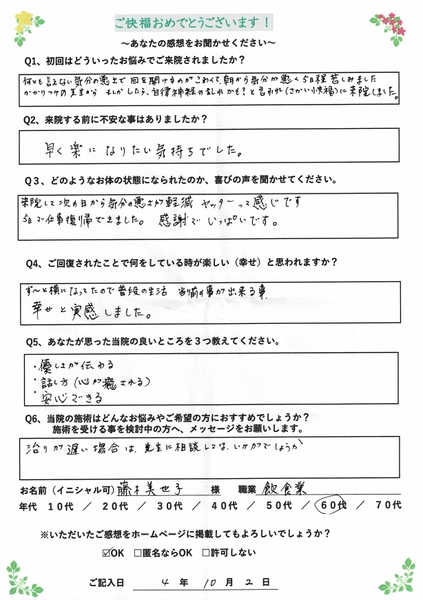 ご快福おめでとうございます！
～あなたの感想をお聞かせください～
Q1、初回はどういったお悩みでご来院されましたか？
何とも言えない気分の悪さで目を開けるのがこわくて、朝から気分が悪く5日程苦しみました
かかりつけの先生から もしかしたら、自律神経の乱れかも？と言われ(さかい快福)に来院しました。
Q2、来院する前に不安な事はありましたか？
早く楽になりたい気持ちでした。
Q３、どのようなお体の状態になられたのか、喜びの声を聞かせてください。
来院して次の日から気分の悪さが軽減 ヤッターって感じです
5日で仕事復帰できました。 感謝でいっぱいです。
Q4、ご回復されたことで何をしている時が楽しい（幸せ）と思われますか？
ず～と横になってたので普段の生活 当り前の事が出来る事、
幸せと実感しました。
Q5、あなたが思った当院の良いところを３つ教えてください。
・優しさが伝わる
・話し方(心が癒される)
・安心できる
Q6、当院の施術はどんなお悩みやご希望の方におすすめでしょうか？
施術を受ける事を検討中の方へ、メッセージをお願いします。
治りが遅い場合は、先生に相談しては、いかがでしょうか
お名前（イニシャル可）藤木美世子 様 職業 飲食業
年代 １0代 ／ ２0代 ／ ３0代 ／ ４0代 ／ ５0代 ／ ６0代 ／ ７0代
※いただいたご感想をホームページに掲載してもよろしいでしょうか？
☑OK □匿名ならOK □許可しない
ご記入日 4 年 10 月 2 日